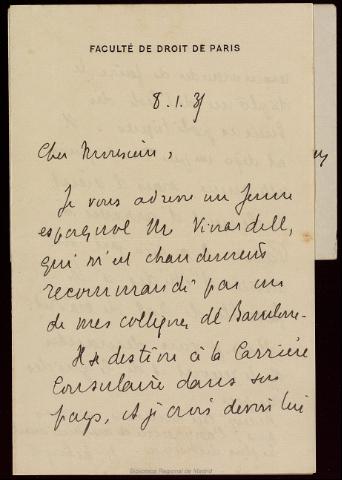 FACULTÉ DE DROIT DE PARIS
8.1.31
Cher Monsieur,
Je vous adresse un jeune
espagnol M Vivardell,
qui m'est chaudement
recommandé par un
de mes collègues de Barcelone.
Il se destine à la Carrière
Consulaire dans son
pays, et je crois devoir lui
Biblioteca Regional de Madrid